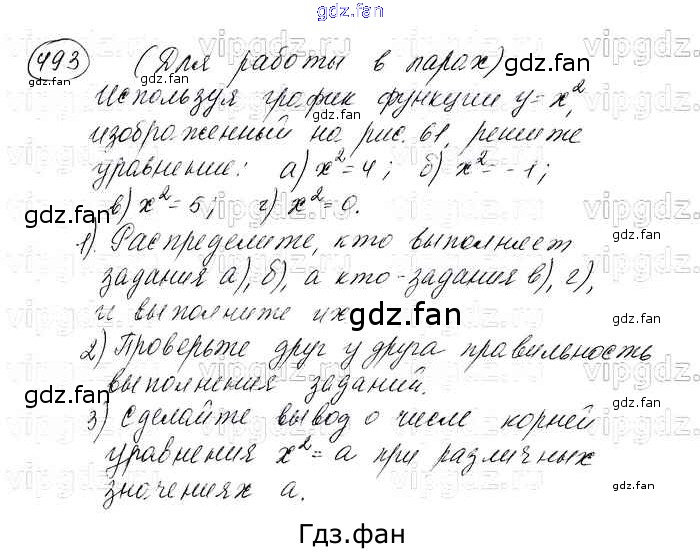 gdz.fan
493 (Для работы в парах)
gdz.fan
gdz.fan
Используя график функции y=x²,
изображенный на рис. 61, решите
уравнение: а) x²=4; б) x²=-1;
в) x²=5; г) x²=0.
gdz.fan
gdz.fan
1). Распределите, кто выполняет
задания а), б), а кто - задания в), г),
и выполните их
gdz.fan
2) Проверьте друг у друга правильность
выполнения заданий.
gdz.fan
gdz.fan
3) Сделайте вывод о числе корней
уравнения x²=a при различных
значениях а.
gdz.fan
gdz.fan
Гдз.фан